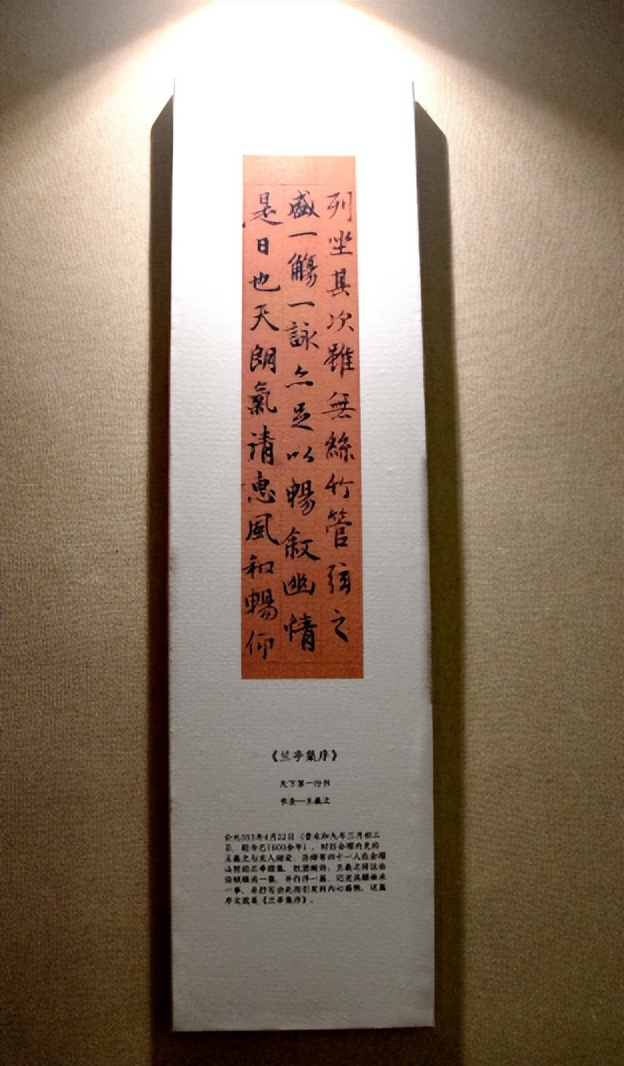 列坐其次雖無絲竹管弦之
盛一觴一詠亦足以暢叙幽情
是日也天朗氣清惠風和暢仰
《兰亭集序》
天下第一行书
书圣—王羲之
公元353年4月22日（晋永和九年三月初三
日，距今已1600余年），时任会稽内史的
王羲之与友人谢安、孙绰等四十一人在会稽
山阴的兰亭雅集，饮酒赋诗。王羲之将这些
诗赋辑成一集，并作序一篇，记述流觞曲水
一事，并抒写由此而引发的内心感慨。这篇
序文就是《兰亭集序》。